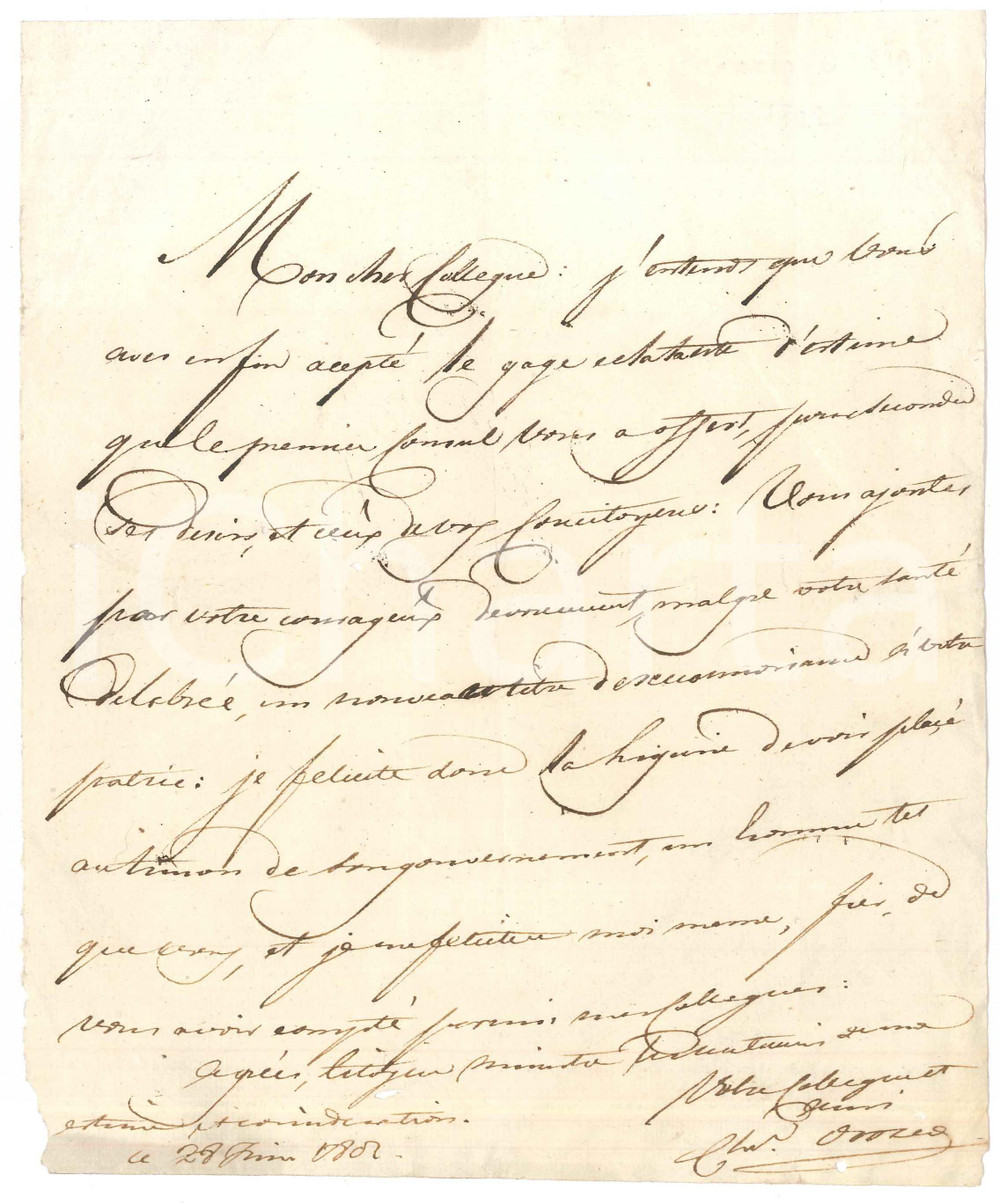 Mon cher Collegue : j'entends que vous
aves enfin acepté le gage eclatante d'estime
que le premier Consul vous a offert, pour seconder
ses desirs, et ceux de vos Concitoyens : Vous ajoutes
par votre courageux devouement, malgré votre santé
delabreé, un nouveau titre de reconnoisance à votre
patrie : je felicite donc la Ligurie d'avoir plaçé
au timon de son gouvernement, un homme tel
que vous, et je me feliciter moi meme, fier, de
vous avoir compté parmis mes Collegues :
Agrées, Citoyen ministre de ma
estime et consideration.
Votre Collegue et
ami
ce 28 Juin 1802.